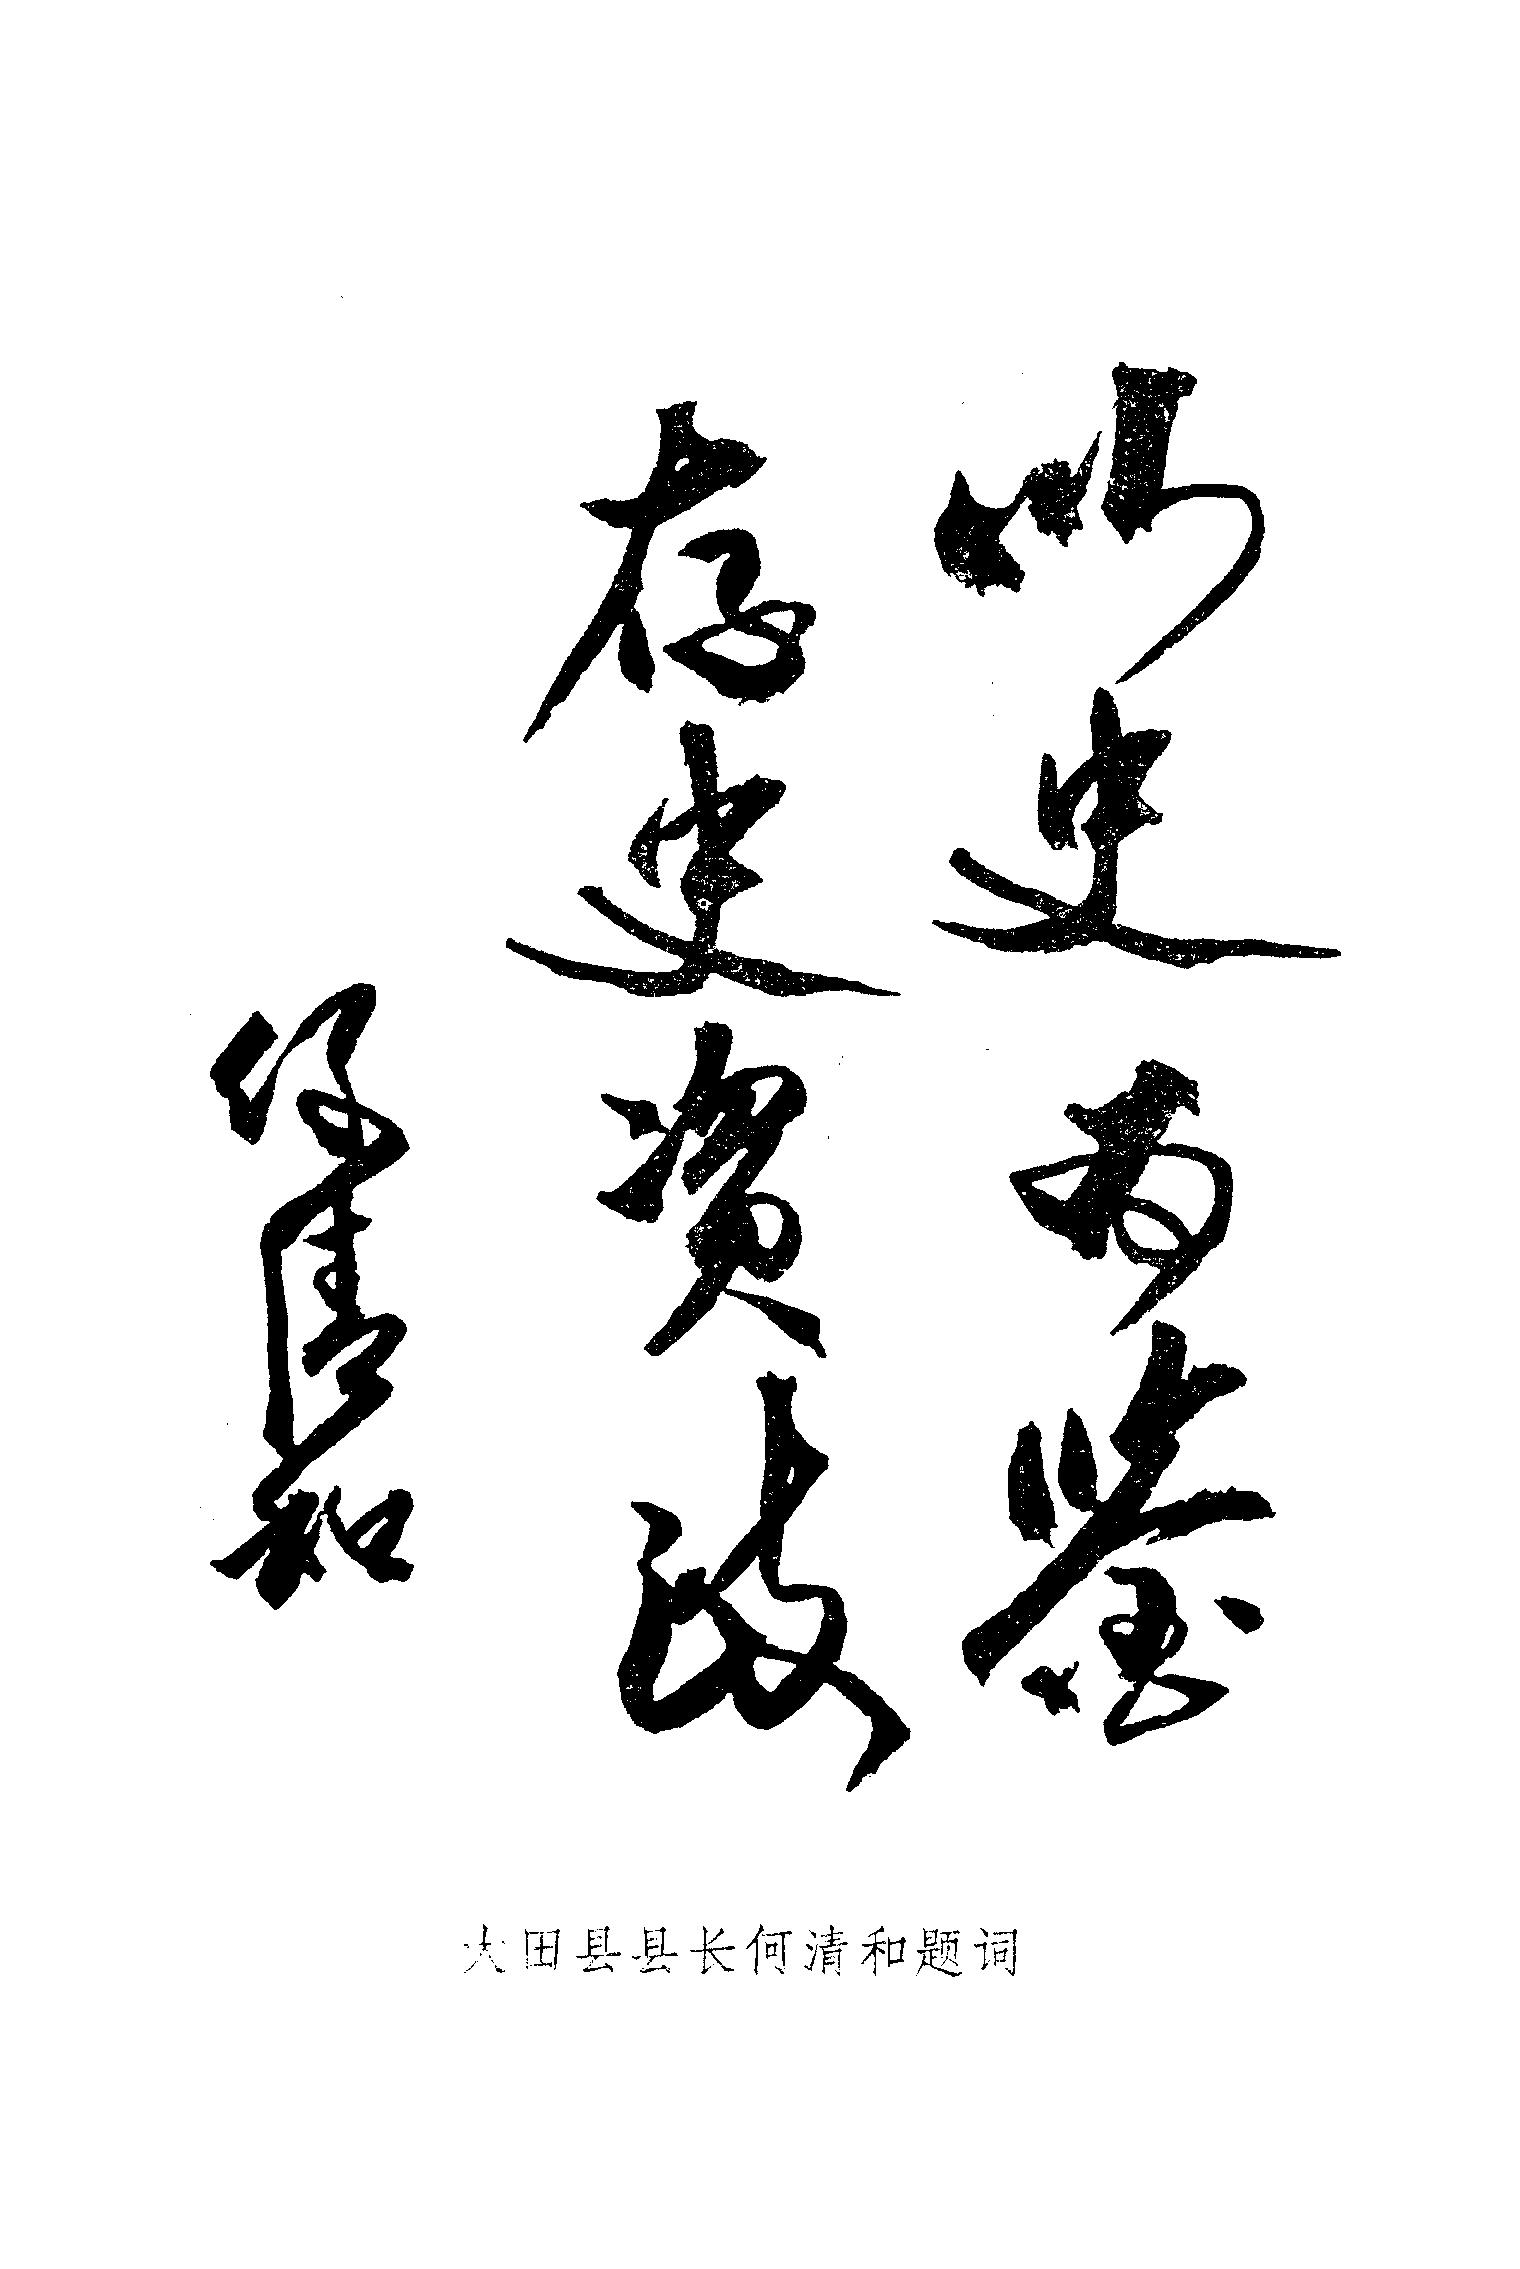 以史为鉴
存史资政
何清和
大田县县长何清和题词